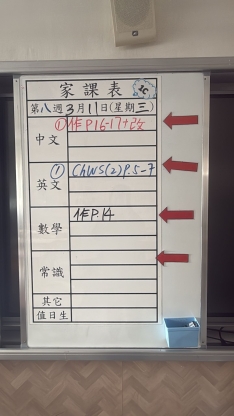 家課表
第八週3月11日(星期三)
①作P16-17+改
中文
① ChWS(2)P.5-7
英文
作P.14
數學
常識
其它
值日生